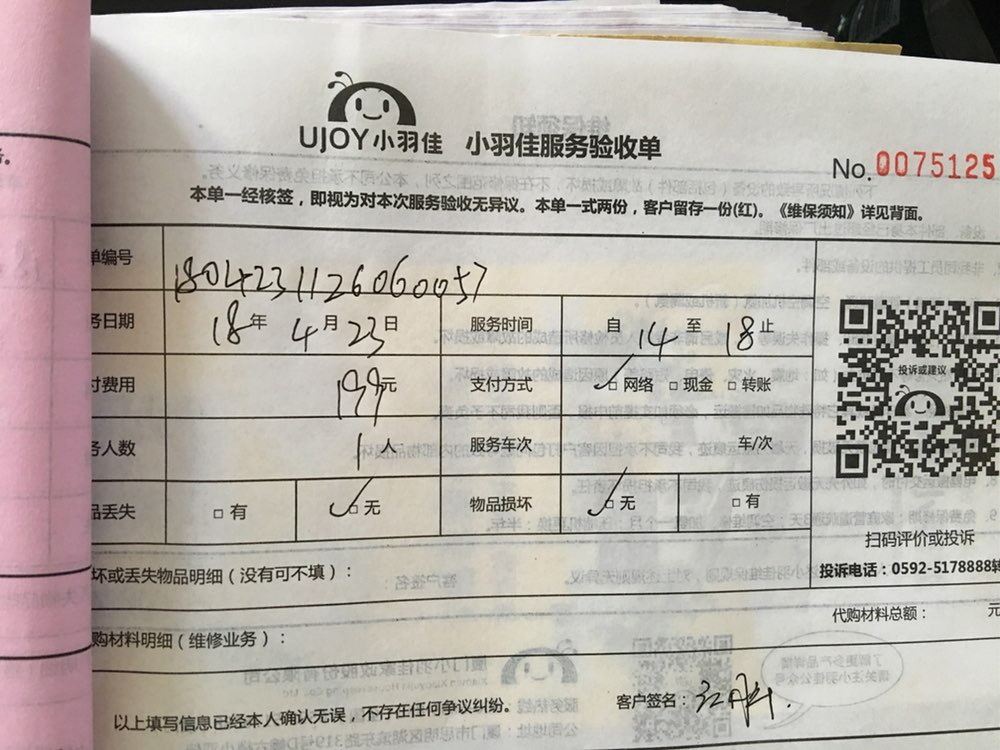 UJOY小羽佳 小羽佳服务验收单
No.0075125
本单一经核签，即视为对本次服务验收无异议。本单一式两份，客户留存一份(红)。《维保须知》详见背面。
单编号 180423112606057
务日期 18年 4月 23日 服务时间 自 14 至 18 止
付费用 199元 支付方式 ✓□网络 □现金 □转账
务人数 1人 服务车次 车/次
品丢失 □有 ✓□无 物品损坏 ✓□无 □有
投诉或建议
扫码评价或投诉
投诉电话：0592-5178888转
坏或丢失物品明细（没有可不填）：
代购材料总额： 元
购材料明细（维修业务）：
以上填写信息已经本人确认无误，不存在任何争议纠纷。
客户签名：